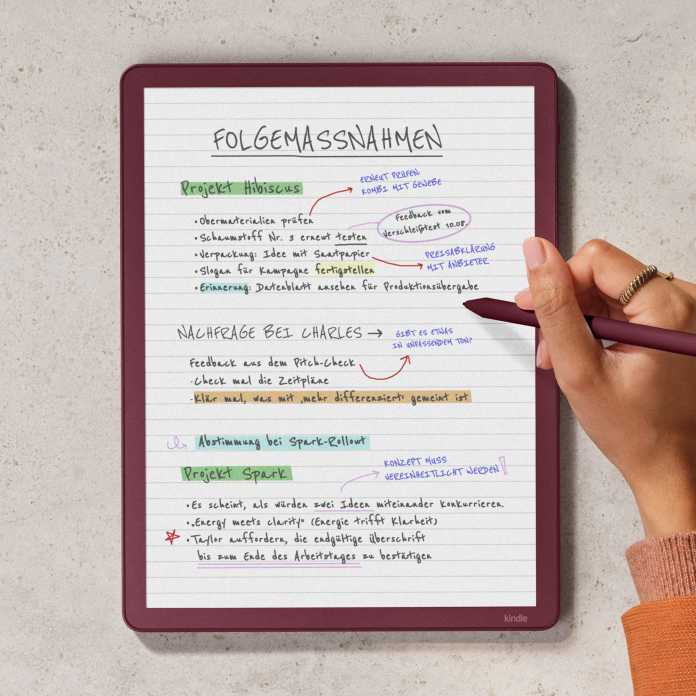 FOLGEMASSNAHMEN
Projekt Hibiscus
ERNEUT PRÜFEN
KOMBI MIT GEWEBE
• Obermaterialien prüfen
Feedback vom
Verschleißtest 10.08.
• Schaumstoff Nr. 3 erneut testen
• Verpackung: Idee mit Saatpapier
PREISABKLÄRUNG
MIT ANBIETER
• Slogan für Kampagne fertigstellen
• Erinnerung: Datenblatt ansehen für Produktionsübergabe
NACHFRAGE BEI CHARLES →
GIBT ES ETWAS
IN UNPASSENDEM TON?
Feedback aus dem Pitch-Check
-Check mal die Zeitpläne
-Klär mal, was mit ‚mehr differenziert' gemeint ist
Abstimmung bei Spark-Rollout
Projekt Spark
KONZEPT MUSS
VEREINHEITLICHT WERDEN!
• Es scheint, als würden zwei Ideen miteinander konkurrieren.
• „Energy meets clarity" (Energie trifft Klarheit)
• Taylor auffordern, die endgültige Überschrift
bis zum Ende des Arbeitstages zu bestätigen
kindle